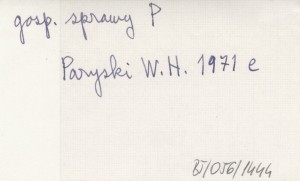 gosp. sprawy P
Paryski W.H. 1971 e
BJ/OJG/1444